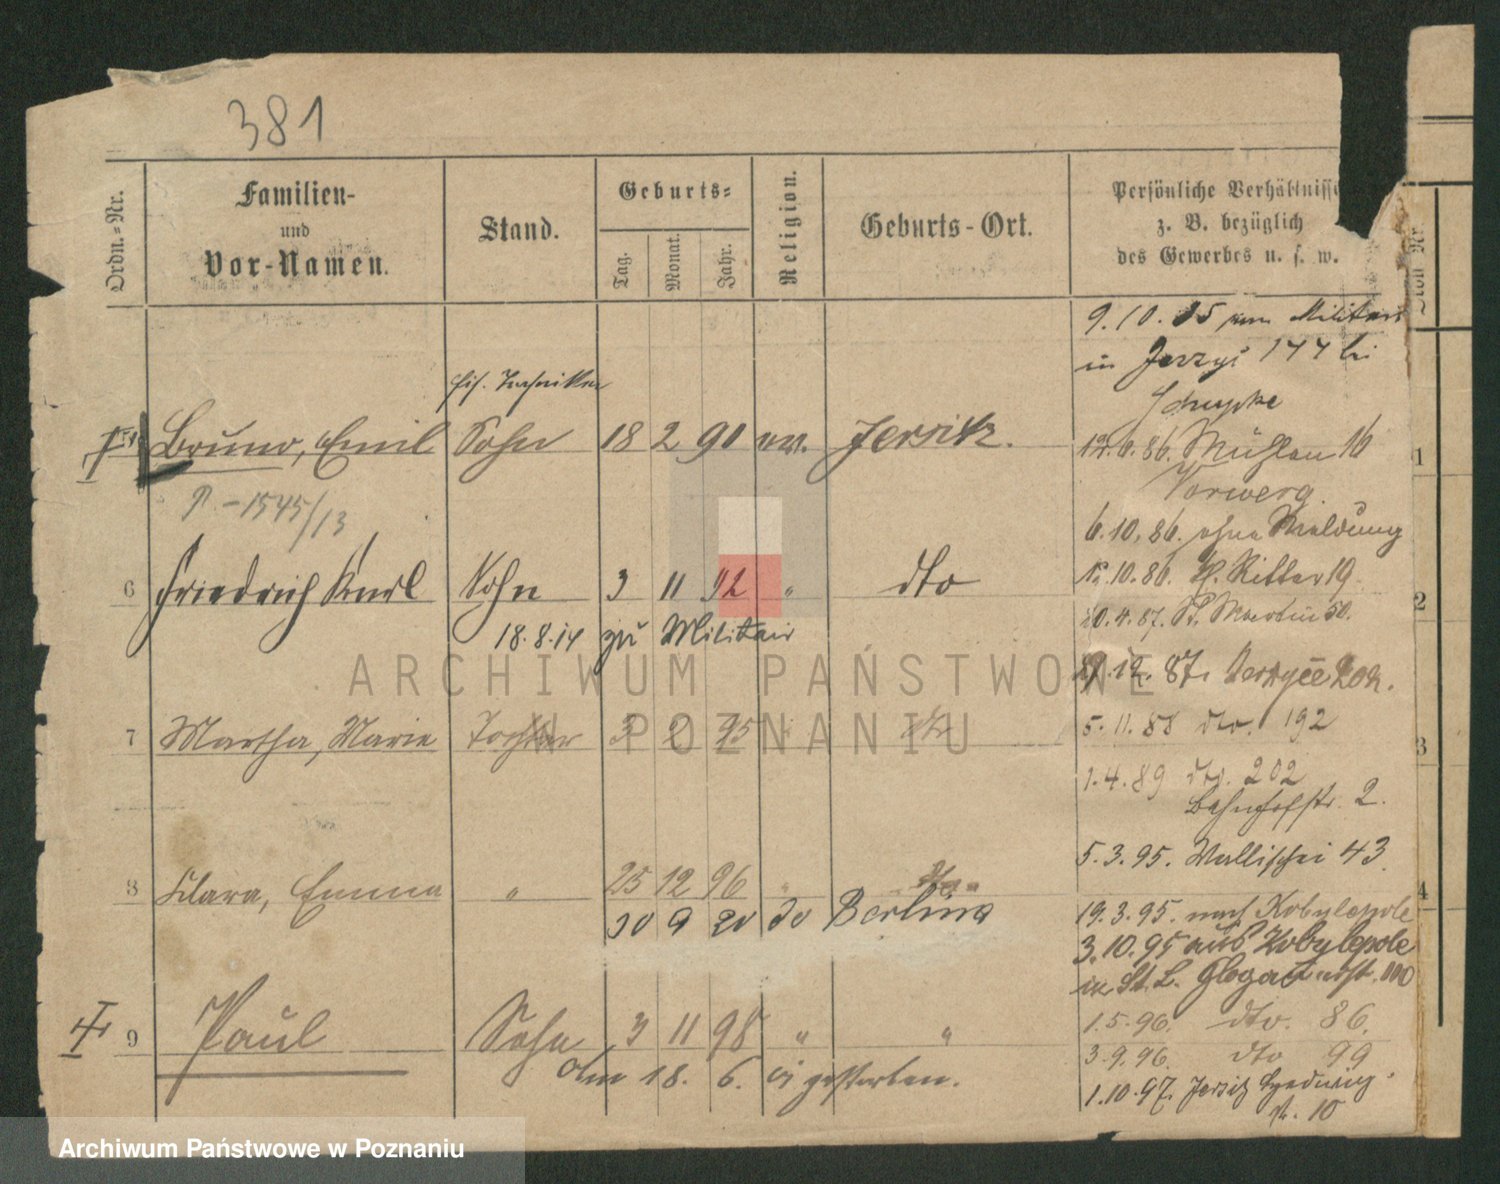 381
Ordn.-Nr.
Familien-
und
Vor-Namen.
Stand.
Geburts-
Tag.
Monat.
Jahr.
Religion.
Geburts-Ort.
Persönliche Verhältnisse
z. B. bezüglich
des Gewerbes u. s. w.
9.10.85 Militair
in 177 bei
Techniker
Bruno, Emil Sohn 18 2 90 ev. Jersitz.
1
12.6.86. Mühlen 16
Vorwerg.
P.-1545/13
6.10.86. ohne Meldung
6 Friedrich Karl Sohn 3 11 92 " dto
12.10.86. H. Ritter 19.
2
20.4.87. St. Martin 50.
18.8.14 zu Militair
12.87.
7 Martha, Marie Tochter 3 2 95
5.11.88 dto. 192
3
1.4.89 dto. 202
Bahnhofstr. 2.
5.3.95. Wallischei 43
8 Klara, Emma " 25 12 96 "
4
30 9 20 do Berlin
19.3.95. nach Kobylepole
3.10.95 aus Kobylepole
in St. L. Glogauerst. 100
9 Paul Sohn 3 11 98 " "
1.5.96. dto. 86.
am 18. 6. gestorben.
3.9.96. dto 99
1.10.97. Jersitz Hedwig
st. 10
ARCHIWUM PAŃSTWOWE
W POZNANIU
Archiwum Państwowe w Poznaniu